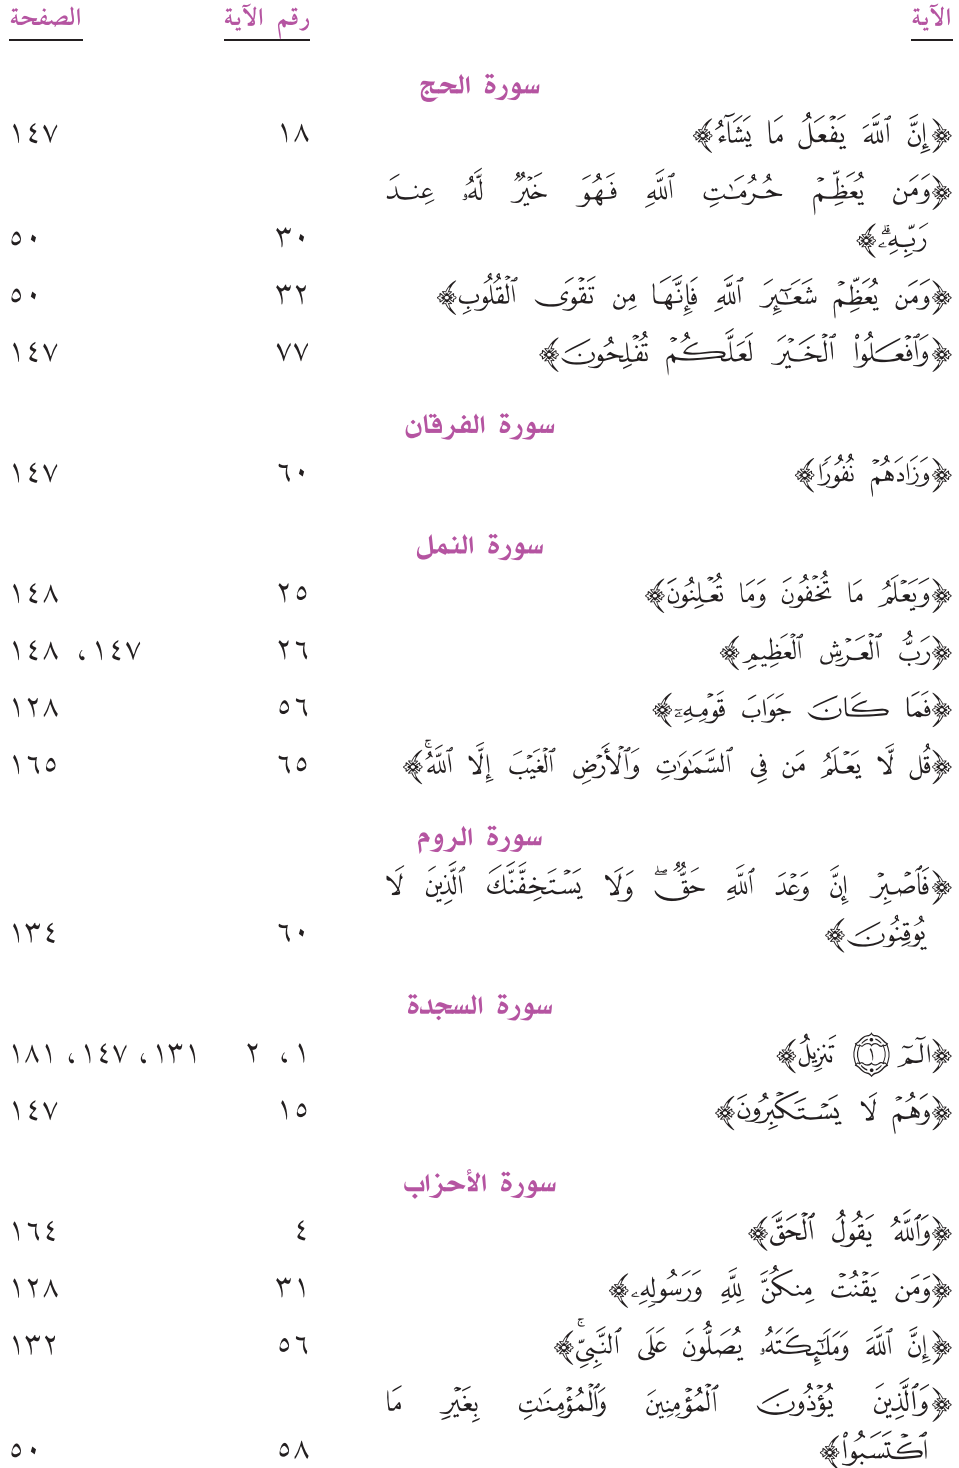 الآية رقم الآية الصفحة
سورة الحج
﴿إِنَّ ٱللَّهَ يَفْعَلُ مَا يَشَآءُ﴾ ١٨ ١٤٧
﴿وَمَن يُعَظِّمْ حُرُمَـٰتِ ٱللَّهِ فَهُوَ خَيْرٌ لَّهُۥ عِندَ
رَبِّهِۦۗ﴾ ٣٠ ٥٠
﴿وَمَن يُعَظِّمْ شَعَـٰٓئِرَ ٱللَّهِ فَإِنَّهَا مِن تَقْوَى ٱلْقُلُوبِ﴾ ٣٢ ٥٠
﴿وَٱفْعَلُوا۟ ٱلْخَيْرَ لَعَلَّكُمْ تُفْلِحُونَ﴾ ٧٧ ١٤٧
سورة الفرقان
﴿وَزَادَهُمْ نُفُورًا﴾ ٦٠ ١٤٧
سورة النمل
﴿وَيَعْلَمُ مَا تُخْفُونَ وَمَا تُعْلِنُونَ﴾ ٢٥ ١٤٨
﴿رَبُّ ٱلْعَرْشِ ٱلْعَظِيمِ﴾ ٢٦ ١٤٧، ١٤٨
﴿فَمَا كَانَ جَوَابَ قَوْمِهِۦٓ﴾ ٥٦ ١٢٨
﴿قُل لَّا يَعْلَمُ مَن فِى ٱلسَّمَـٰوَٰتِ وَٱلْأَرْضِ ٱلْغَيْبَ إِلَّا ٱللَّهُۚ﴾ ٦٥ ١٦٥
سورة الروم
﴿فَٱصْبِرْ إِنَّ وَعْدَ ٱللَّهِ حَقٌّۖ وَلَا يَسْتَخِفَّنَّكَ ٱلَّذِينَ لَا
يُوقِنُونَ﴾ ٦٠ ١٣٤
سورة السجدة
﴿الٓمٓ ۝١ تَنزِيلُ﴾ ١، ٢ ١٣١، ١٤٧، ١٨١
﴿وَهُمْ لَا يَسْتَكْبِرُونَ﴾ ١٥ ١٤٧
سورة الأحزاب
﴿وَٱللَّهُ يَقُولُ ٱلْحَقَّ﴾ ٤ ١٦٤
﴿وَمَن يَقْنُتْ مِنكُنَّ لِلَّهِ وَرَسُولِهِۦ﴾ ٣١ ١٢٨
﴿إِنَّ ٱللَّهَ وَمَلَـٰٓئِكَتَهُۥ يُصَلُّونَ عَلَى ٱلنَّبِىِّۚ﴾ ٥٦ ١٣٢
﴿وَٱلَّذِينَ يُؤْذُونَ ٱلْمُؤْمِنِينَ وَٱلْمُؤْمِنَـٰتِ بِغَيْرِ مَا
ٱكْتَسَبُوا۟﴾ ٥٨ ٥٠